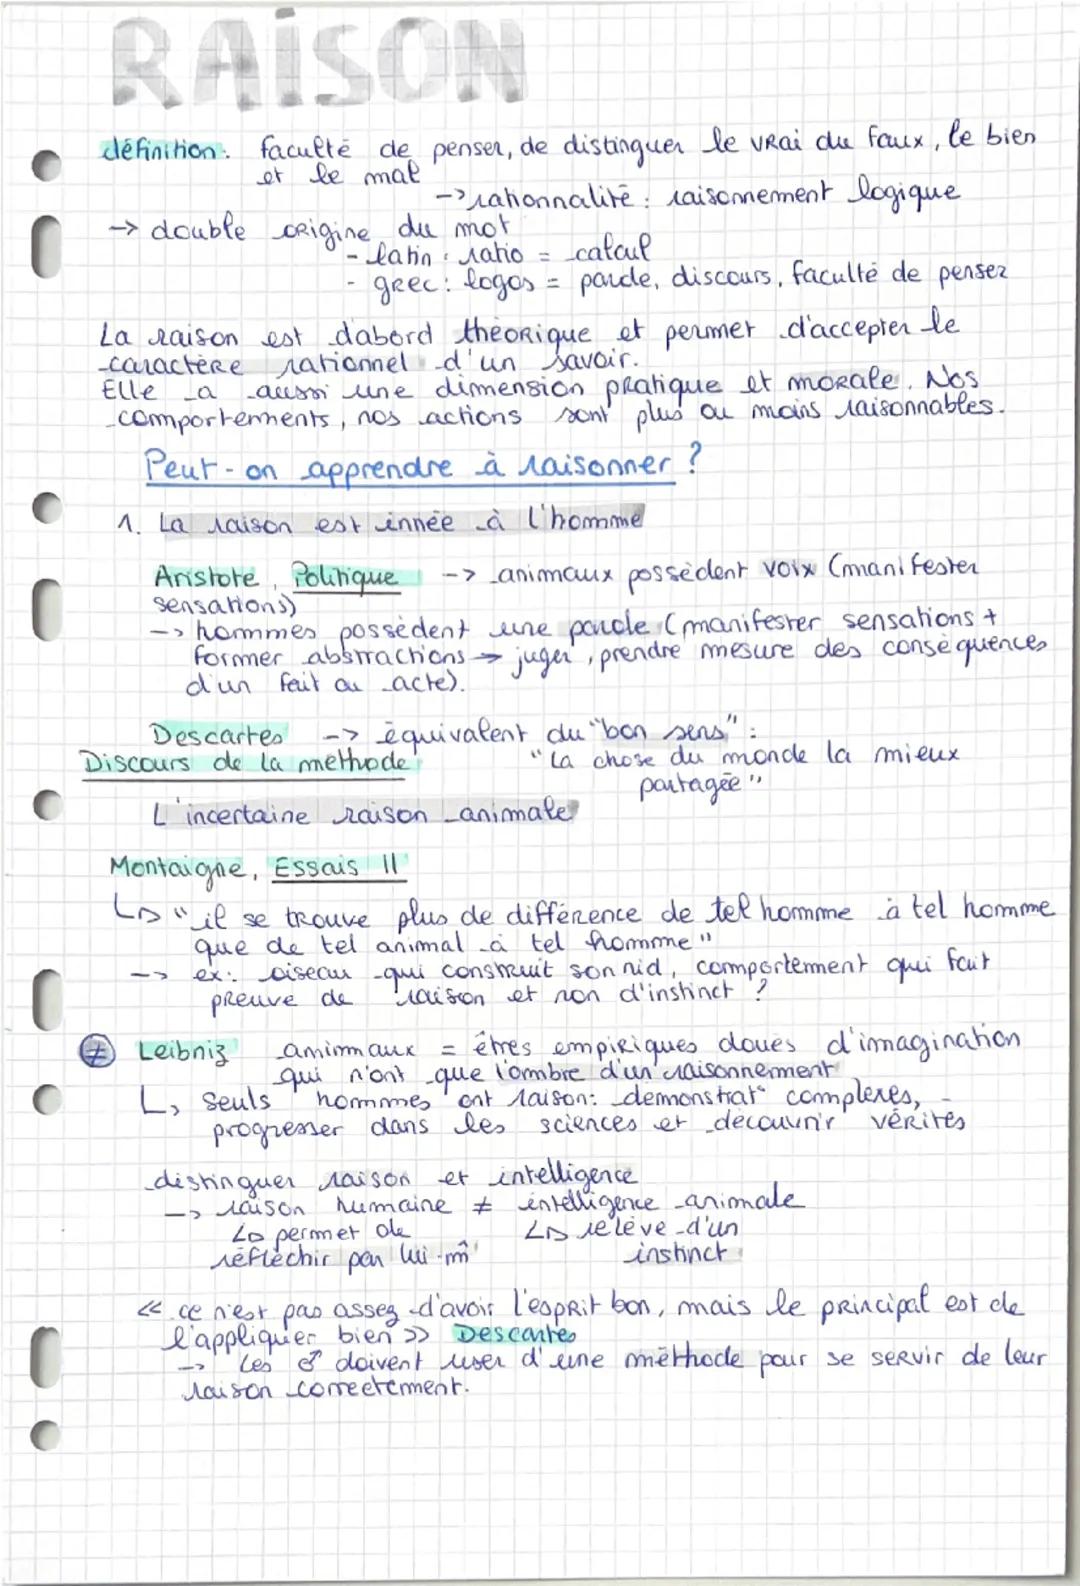 RAiSON
définition : faculté de penser, de distinguer le vrai du faux, le bien
et le mal
-> rationnalité : raisonnement logique
-> double origine du mot
- latin : ratio = calcul
- grec : logos = parole, discours, faculté de penser
La raison est d'abord théorique et permet d'accepter le
caractère rationnel d'un savoir.
Elle a aussi une dimension pratique et morale. Nos
comportements, nos actions sont plus ou moins raisonnables.
Peut-on apprendre à raisonner ?
1. La raison est innée à l'homme
Aristote, Politique -> animaux possèdent voix (manifester
sensations)
-> hommes possèdent une parole (manifester sensations +
former abstractions -> juger, prendre mesure des conséquences
d'un fait ou acte).
Descartes -> équivalent du "bon sens" :
Discours de la méthode "La chose du monde la mieux
partagée"
L'incertaine raison animale
Montaigne, Essais II
↳ "il se trouve plus de différence de tel homme à tel homme
que de tel animal à tel homme"
-> ex : oiseau qui construit son nid, comportement qui fait
preuve de raison et non d'instinct ?
≠ Leibniz animaux = êtres empiriques doués d'imagination
qui n'ont que l'ombre d'un raisonnement
↳ seuls hommes ont raison : demonstrat° complexes,
progresser dans les sciences et découvrir vérités
distinguer raison et intelligence
-> raison humaine ≠ intelligence animale
↳ permet de ↳ relève d'un
réfléchir par lui-m̂ instinct
« ce n'est pas assez d'avoir l'esprit bon, mais le principal est de
l'appliquer bien » Descartes
-> Les ♂ doivent user d'une méthode pour se servir de leur
raison correctement.